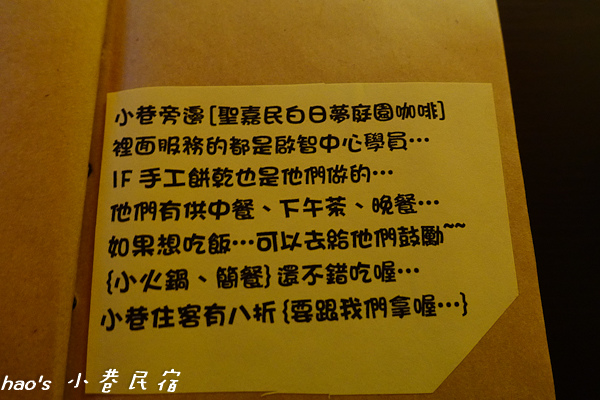 小巷旁邊[聖嘉民白日夢庭園咖啡]
裡面服務的都是啟智中心學員…
IF手工餅乾也是他們做的…
他們有供中餐、下午茶、晚餐…
如果想吃飯…可以去給他們鼓勵~~
{小火鍋、簡餐}還不錯吃喔…
小巷住客有八折{要跟我們拿喔…}
hao's 小巷民宿